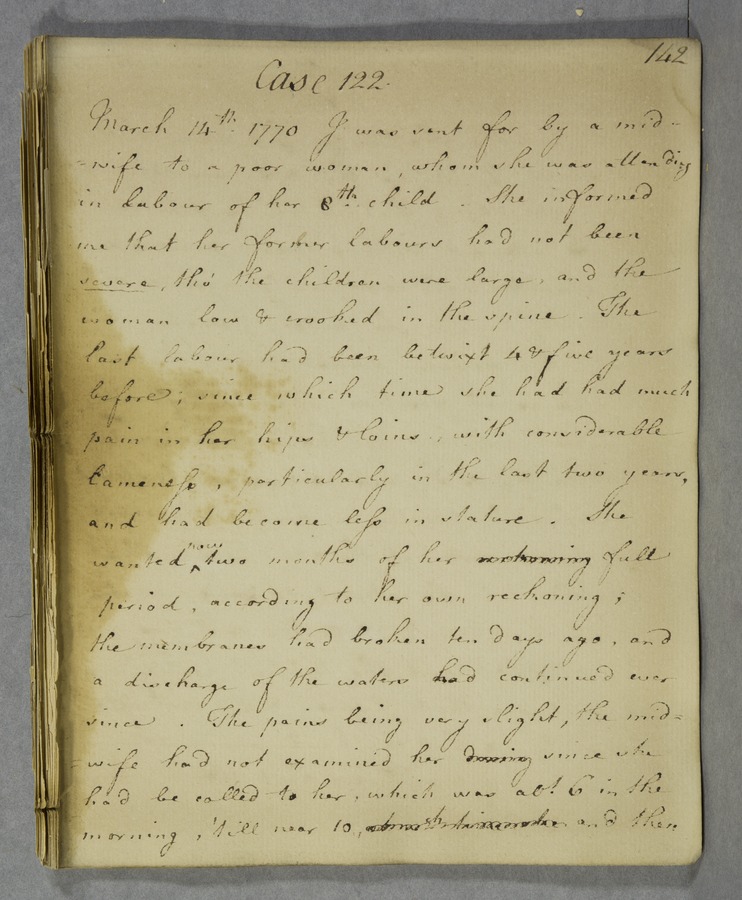 142
Case 122.
March 14th. 1770 I was sent for by a mid=
=wife to a poor woman, whom she was attending
in labour of her 8th. child. She informed
me that her former labours had not been
severe, tho' the children were large, and the
woman low & crooked in the spine. The
last labour had been betwixt 4 & five years
before; since which time she had had much
pain in her hips & loins, with considerable
lameness, particularly in the last two years,
and had become less in stature. The
wanted now two months of her reckoning full
period, according to her own reckoning;
the membranes had broken ten days ago, and
a discharge of the waters had continued ever
since. The pains being very slight, the mid=
=wife had not examined her during since she
had be called to her, which was abt. 6 in the
morning, 'till near 10, and then